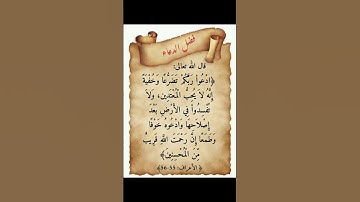 فضل الدعاء
قال الله تعالى:
﴿ادْعُوا رَبَّكُمْ تَضَرُّعًا وَخُفْيَةً
إِنَّهُ لَا يُحِبُّ الْمُعْتَدِينَ، وَلَا
تُفْسِدُوا فِي الْأَرْضِ بَعْدَ
إِصْلَاحِهَا وَادْعُوهُ خَوْفًا
وَطَمَعًا إِنَّ رَحْمَتَ اللَّهِ قَرِيبٌ
مِّنَ الْمُحْسِنِينَ﴾
﴿الأعراف: 55-56﴾